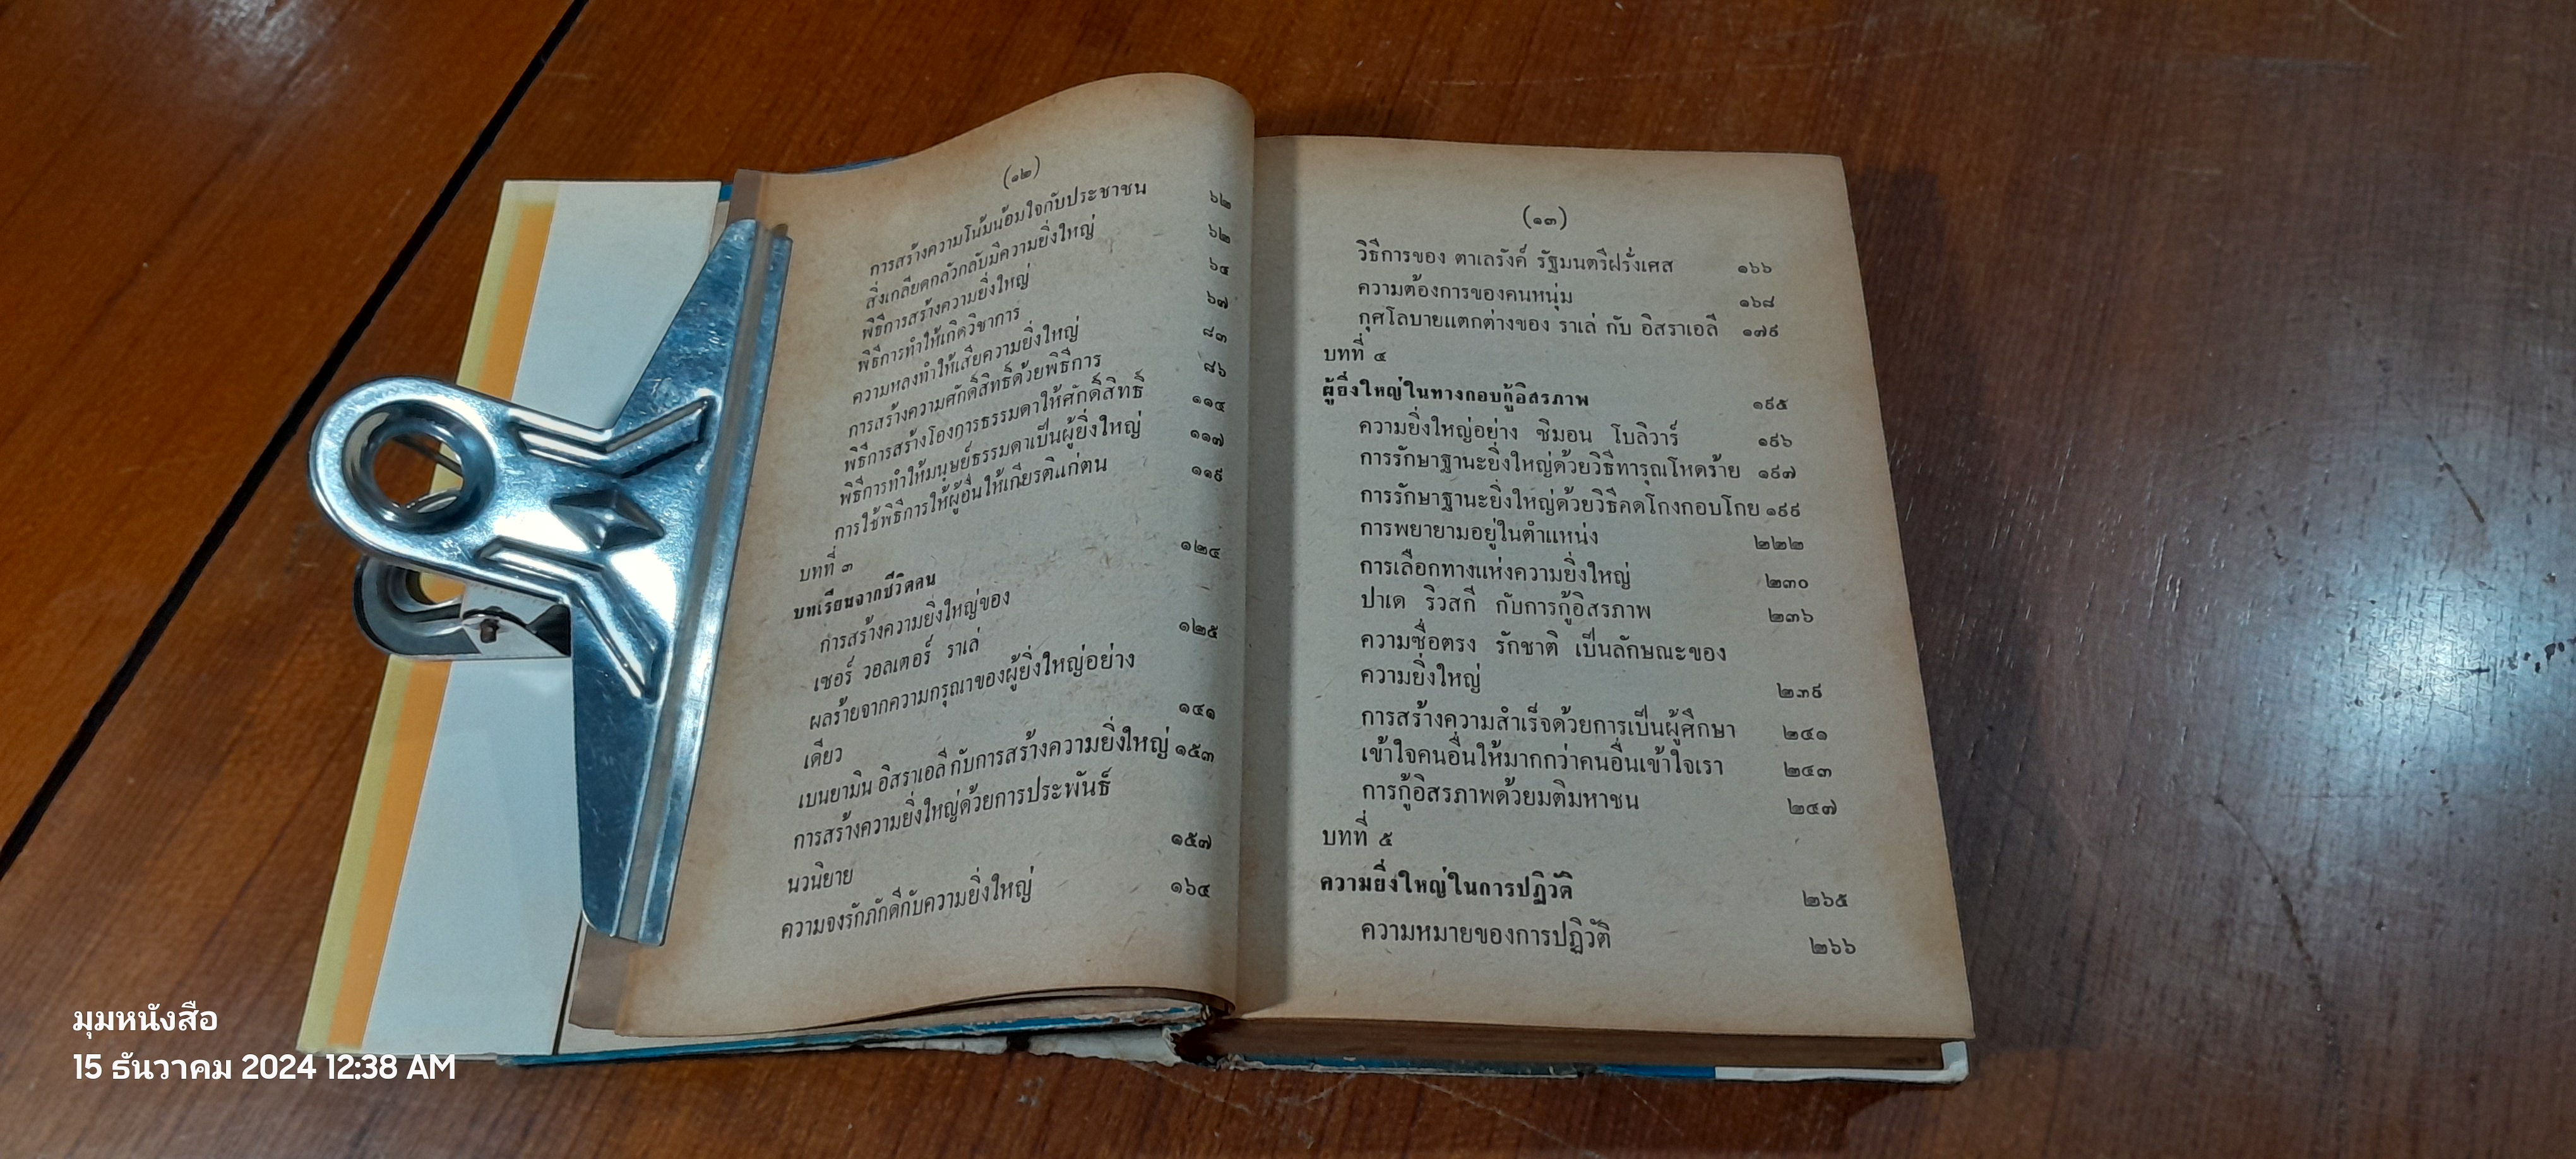 (๑๒)
การสร้างความโน้มน้อมใจกับประชาชน ๖๒
สิ่งเกลียดกลัวกลับมีความยิ่งใหญ่ ๖๒
พิธีการสร้างความยิ่งใหญ่ ๖๔
พิธีการทำให้เกิดวิชาการ ๖๗
ความหลงทำให้เสียความยิ่งใหญ่ ๘๓
การสร้างความศักดิ์สิทธิ์ด้วยพิธีการ ๘๖
พิธีการสร้างโองการธรรมดาให้ศักดิ์สิทธิ์ ๑๑๔
พิธีการทำให้มนุษย์ธรรมดาเป็นผู้ยิ่งใหญ่ ๑๑๗
การใช้พิธีการให้ผู้อื่นให้เกียรติแก่ตน ๑๑๙
บทที่ ๓
บทเรียนจากชีวิตคน ๑๒๔
การสร้างความยิ่งใหญ่ของ
เซอร์ วอลเตอร์ ราเล่ ๑๒๕
ผลร้ายจากความกรุณาของผู้ยิ่งใหญ่อย่าง
เดียว ๑๔๑
เบนยามิน อิสราเอลี กับการสร้างความยิ่งใหญ่ ๑๕๓
การสร้างความยิ่งใหญ่ด้วยการประพันธ์
นวนิยาย ๑๕๗
ความจงรักภักดีกับความยิ่งใหญ่ ๑๖๔
(๑๓)
วิธีการของ ตาเลรังค์ รัฐมนตรีฝรั่งเศส ๑๖๖
ความต้องการของคนหนุ่ม ๑๖๘
กุศโลบายแตกต่างของ ราเล่ กับ อิสราเอลี ๑๗๙
บทที่ ๔
ผู้ยิ่งใหญ่ในทางกอบกู้อิสรภาพ ๑๙๕
ความยิ่งใหญ่อย่าง ซิมอน โบลิวาร์ ๑๙๖
การรักษาฐานะยิ่งใหญ่ด้วยวิธีทารุณโหดร้าย ๑๙๗
การรักษาฐานะยิ่งใหญ่ด้วยวิธีคดโกงกอบโกย ๑๙๙
การพยายามอยู่ในตำแหน่ง ๒๒๒
การเลือกทางแห่งความยิ่งใหญ่ ๒๓๐
ปาเด ริวสกี กับการกู้อิสรภาพ ๒๓๖
ความซื่อตรง รักชาติ เป็นลักษณะของ
ความยิ่งใหญ่ ๒๓๙
การสร้างความสำเร็จด้วยการเป็นผู้ศึกษา ๒๔๑
เข้าใจคนอื่นให้มากกว่าคนอื่นเข้าใจเรา ๒๔๓
การกู้อิสรภาพด้วยมติมหาชน ๒๔๗
บทที่ ๕
ความยิ่งใหญ่ในการปฏิวัติ ๒๖๕
ความหมายของการปฏิวัติ ๒๖๖
มุมหนังสือ
15 ธันวาคม 2024 12:38 AM